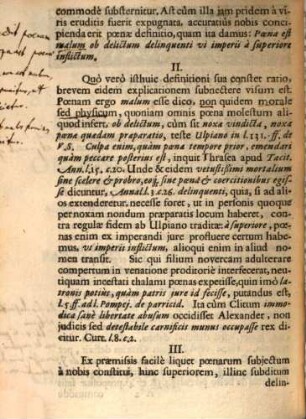 commodè substernitur. Ast cùm illa jam pridem à vi-
ris eruditis fuerit expugnata, accuratiùs nobis conci-
pienda erit pœnæ definitio, quam ita damus: Pœna est
malum ob delictum delinquenti vi imperii à superiore
inflictum.
II.
Quò verò isthuic definitioni sua constet ratio,
brevem eidem explicationem subnectere visum est.
Pœnam ergo malum esse dico, non quidem morale
sed physicum, quoniam omnis pœna molestum ali-
quod insert. ob delictum, cùm sit noxæ vindicta, noxa
pœnæ quædam præparatio, teste Ulpiano in l.131. ff. de
V.S. Culpa enim, quàm pœna tempore prior, emendari
quàm peccare posterius est, inquit Thrasea apud Tacit.
Ann. l.15. c.20. Unde & eidem vetustissimi mortalium
sine scelere & probro, eoq; sine pœnâ & coercitionibus egis-
se dicuntur, Annal. l.3. c.26. delinquenti, quia, si ad ali-
os extenderetur, necesse foret, ut in personis quoque
per noxam nondum præparatis locum haberet, con-
tra regulæ fidem ab Ulpiano traditæ: à superiore, pœ-
nas enim ex imperandi jure profluere certum habe-
mus. vi imperii inflictum, alioqui enim in aliud no-
men transit. Sic qui filium novercam adulterare
compertum in venatione proditoriè interfecerat, neu-
tiquam incestati thalami pœnas expetiisse, quin imò la-
tronis potiùs, quàm patris jure id fecisse, putandus est,
l.5. ff. ad l. Pompej. de parricid. Ita cùm Clitum immo-
dica sauè libertate abusum occidisset Alexander, non
judicis sed detestabile carnificis munus occupasse rex di-
citur. Curt. l.8. c.2.
III.
Ex præmissis facilè liquet pœnarum subjectum
à nobis constitui, hunc superiorem, illinc subditum
delin-